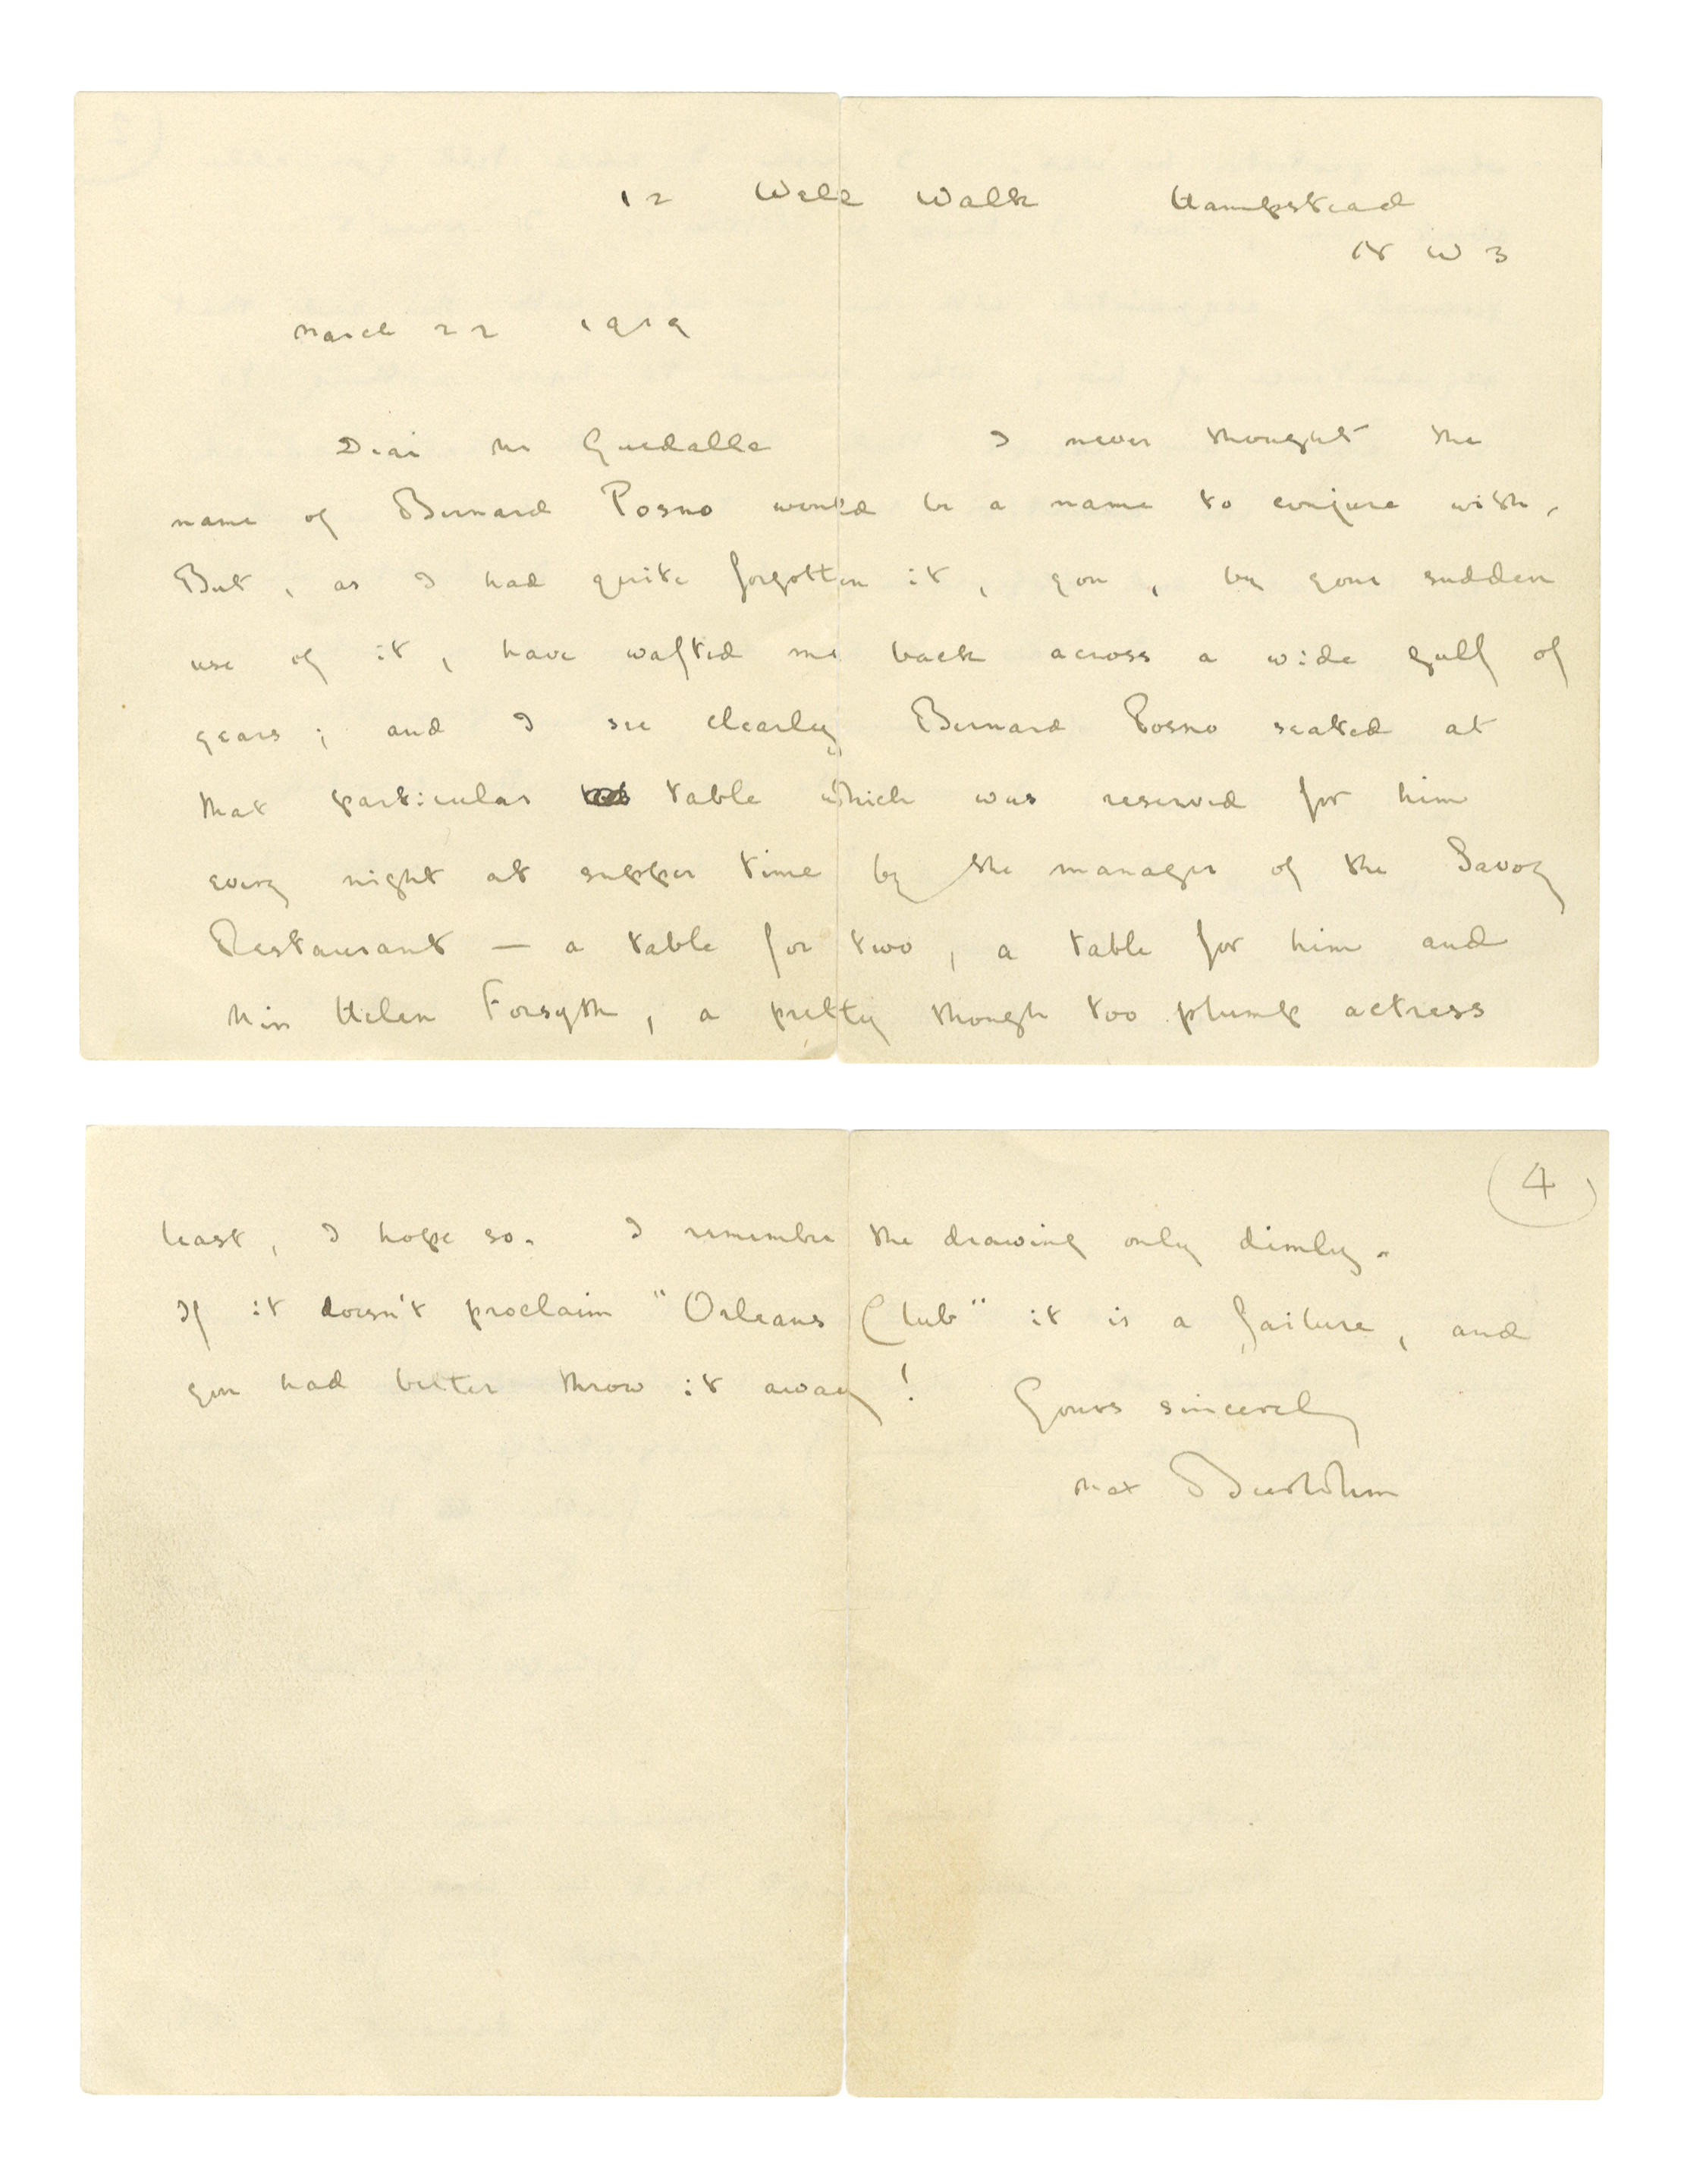 12 Well Walk Hampstead
N W 3
March 22 1919
Dear Mr Guedalla I never thought the
name of Bernard Posno would be a name to conjure with.
But, as I had quite forgotten it, you, by your sudden
use of it, have wafted me back across a wide gulf of
years; and I see clearly Bernard Posno seated at
that particular table which was reserved for him
every night at supper time by the manager of the Savoy
Restaurant — a table for two, a table for him and
Miss Helen Forsyth, a pretty though too plump actress
4
least, I hope so. I remember the drawing only dimly.
If it doesn't proclaim "Orleans Club" it is a failure, and
you had better throw it away! Yours sincerely
Max Beerbohm